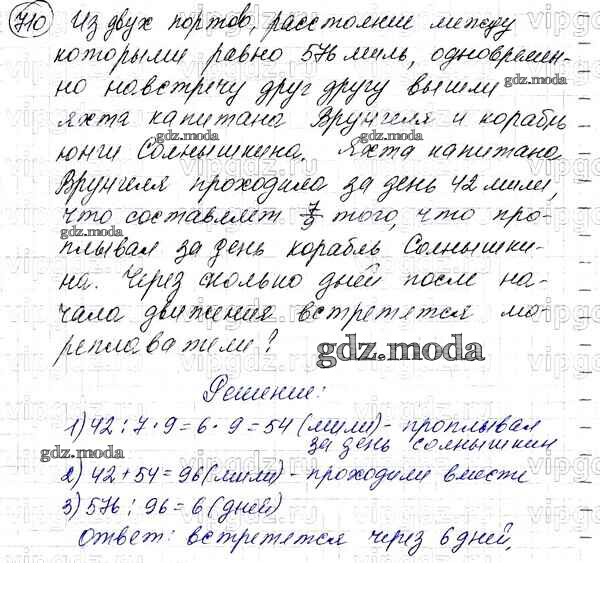 710 Из двух портов, расстояние между
которыми равно 576 миль, одновремен-
но навстречу друг другу вышли
яхта капитана Врунгеля и корабль
юнги Солнышкина. Яхта капитана
Врунгеля проходила за день 42 мили,
что составляет 7/9 того, что про-
плывал за день корабль Солнышки-
на. Через сколько дней после на-
чала движения встретятся мо-
реплаватели?
gdz.moda
Решение:
1) 42 : 7 · 9 = 6 · 9 = 54 (мили) - проплывал
за день солнышкин
2) 42 + 54 = 96 (мили) - проходили вместе
3) 576 : 96 = 6 (дней)
Ответ: встретятся через 6 дней.